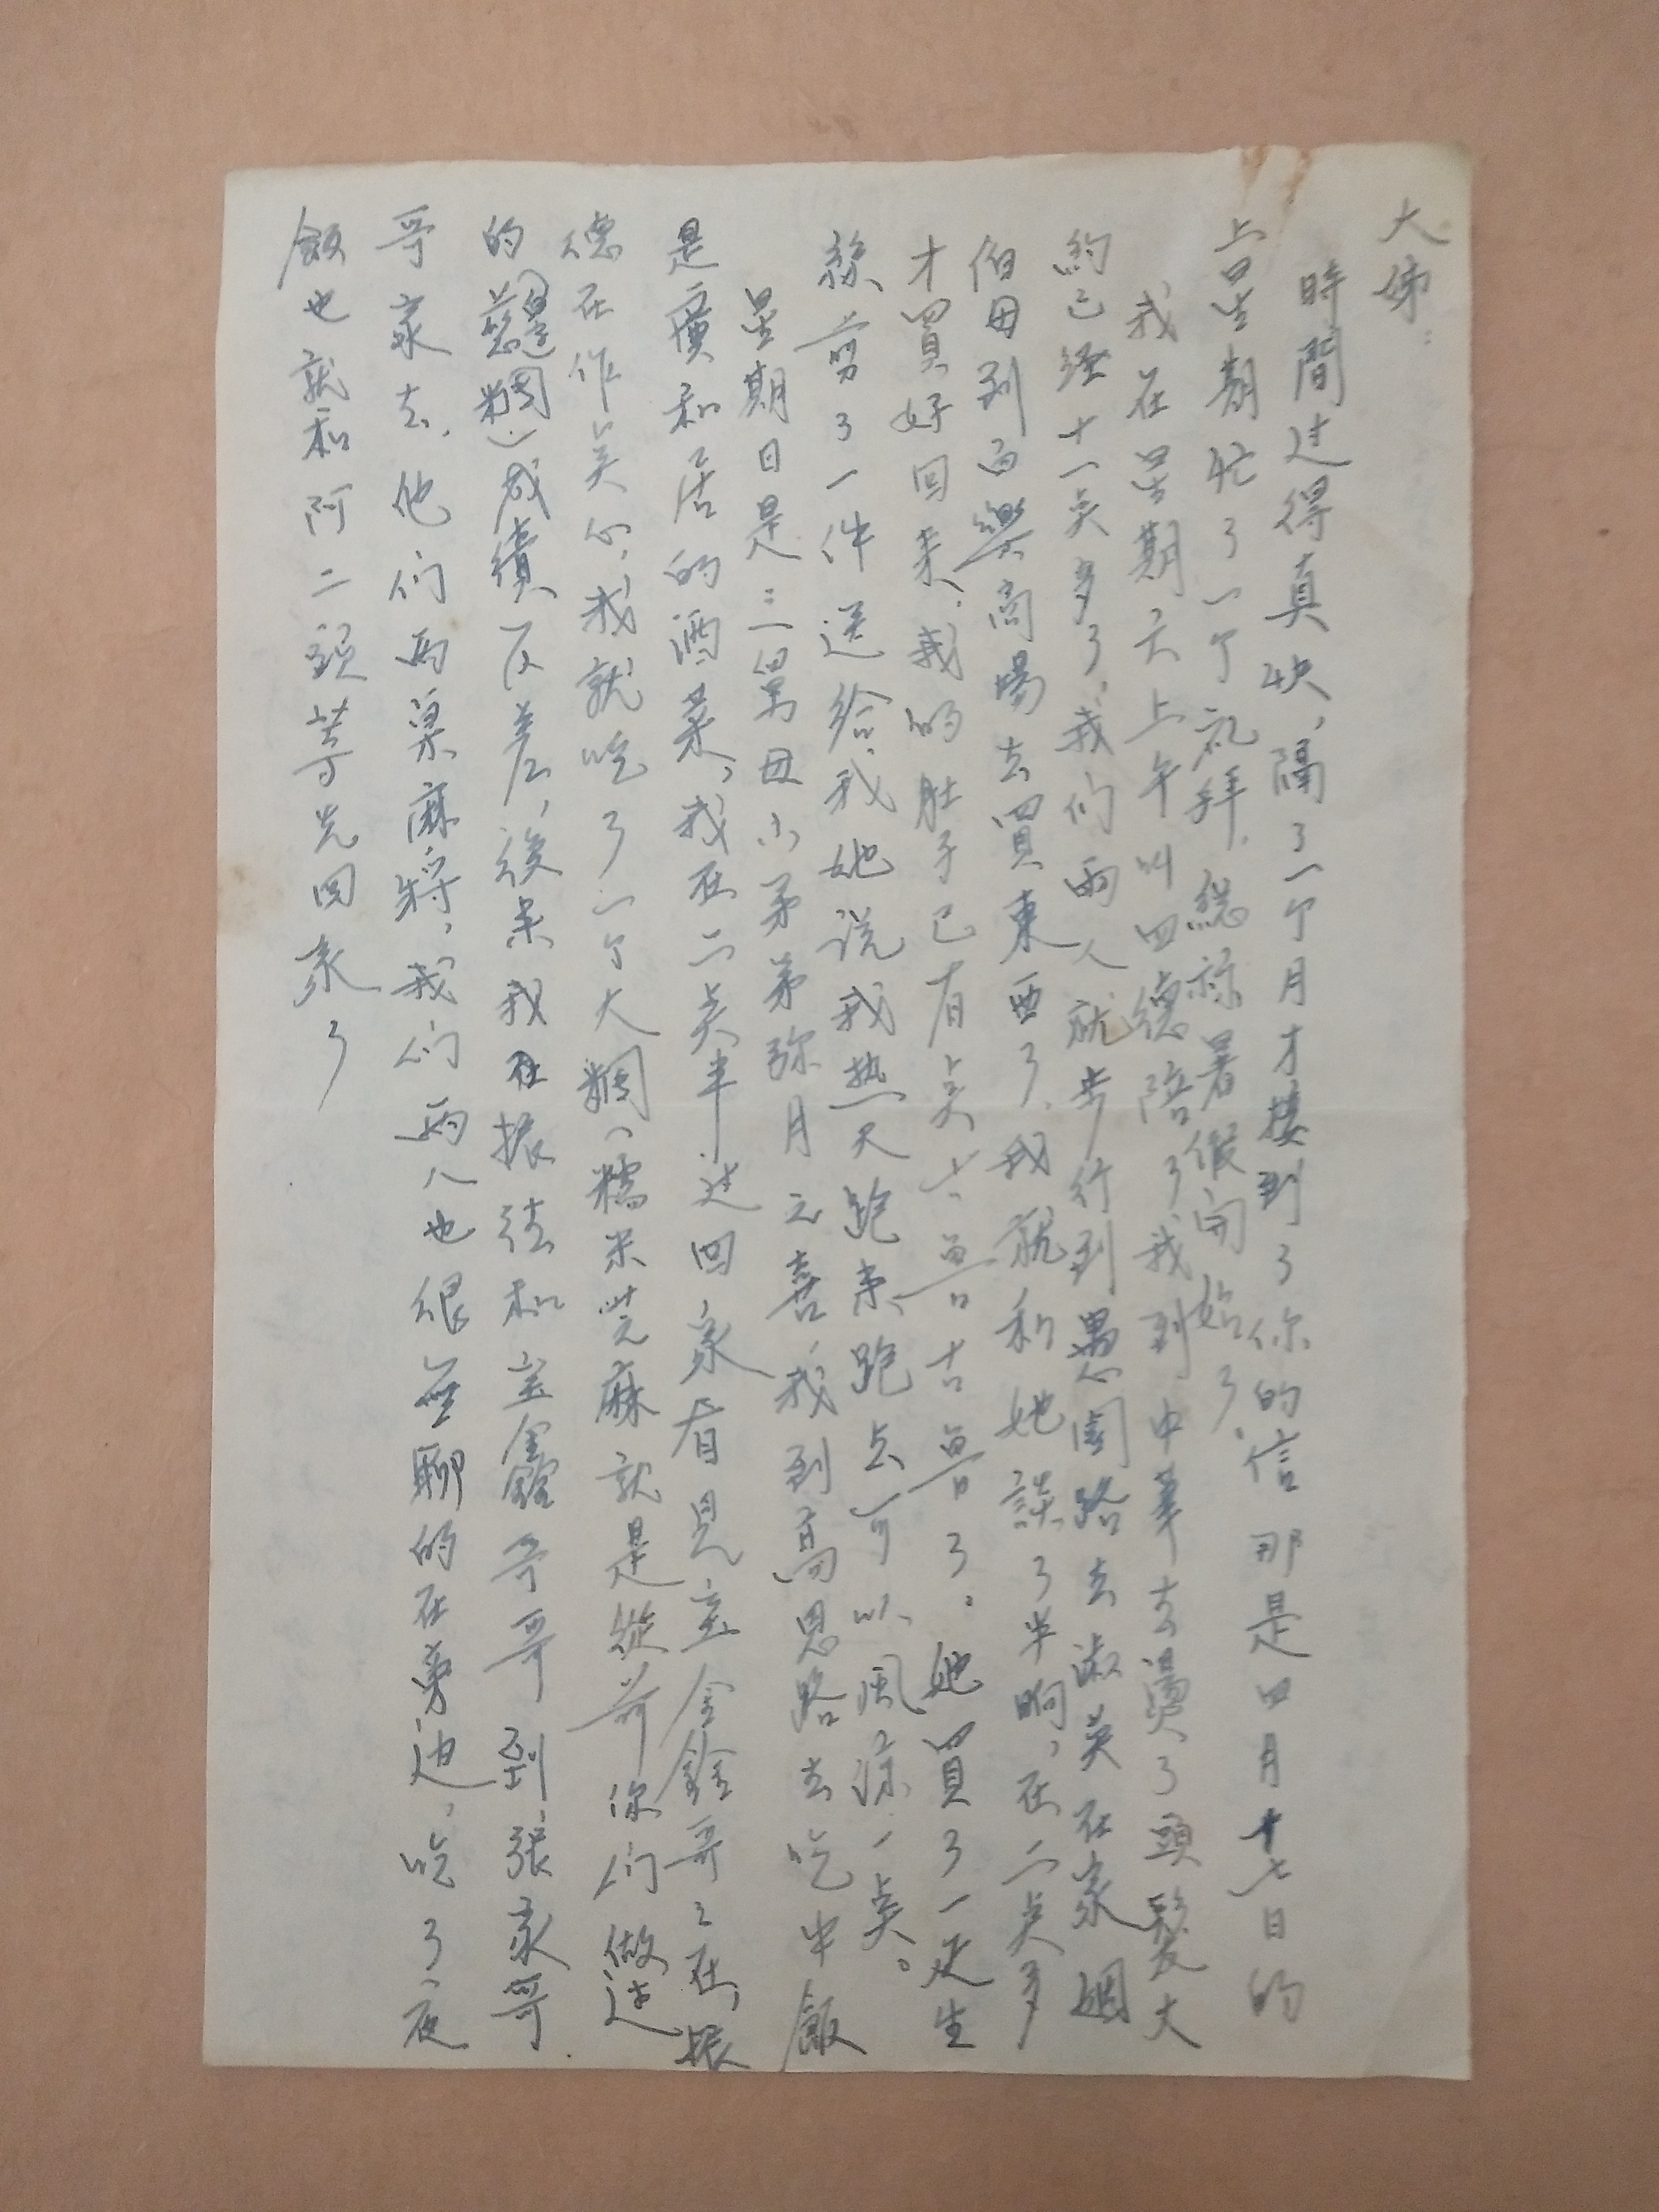 大姊：
時間过得真快，隔了一个月才接到了你的信那是四月十七日的
上星期忙了一个礼拜，總算暑假開始了。
我在星期六上午叫四德陪了我到中華去燙了頭髮大
約已經十一点多了，我们兩人就步行到愚園路去淑英在家姻
伯母到西樂商場去買東西了，我就和她談了半晌，在二点多
才買好回来，我的肚子已有点十曾古曾了。她買了一疋生
絲剪了一件送給我她说我热天跑来跑去可以風凉一点。
星期日是三舅母小弟弟弥月之喜，我到高恩路去吃中飯
是廣和居的酒菜，我在二点半过回家看見宝金銓哥々在振
德在作点心，我就吃了一个大糰（糯米芝麻就是從前你们做过
的糰）成績反差，後来我和宝鑫銓哥哥到張家哥
哥家去，他们兩桌麻将，我们兩人也很無聊的在旁边，吃了夜
飯也就和阿二頭等先回家了